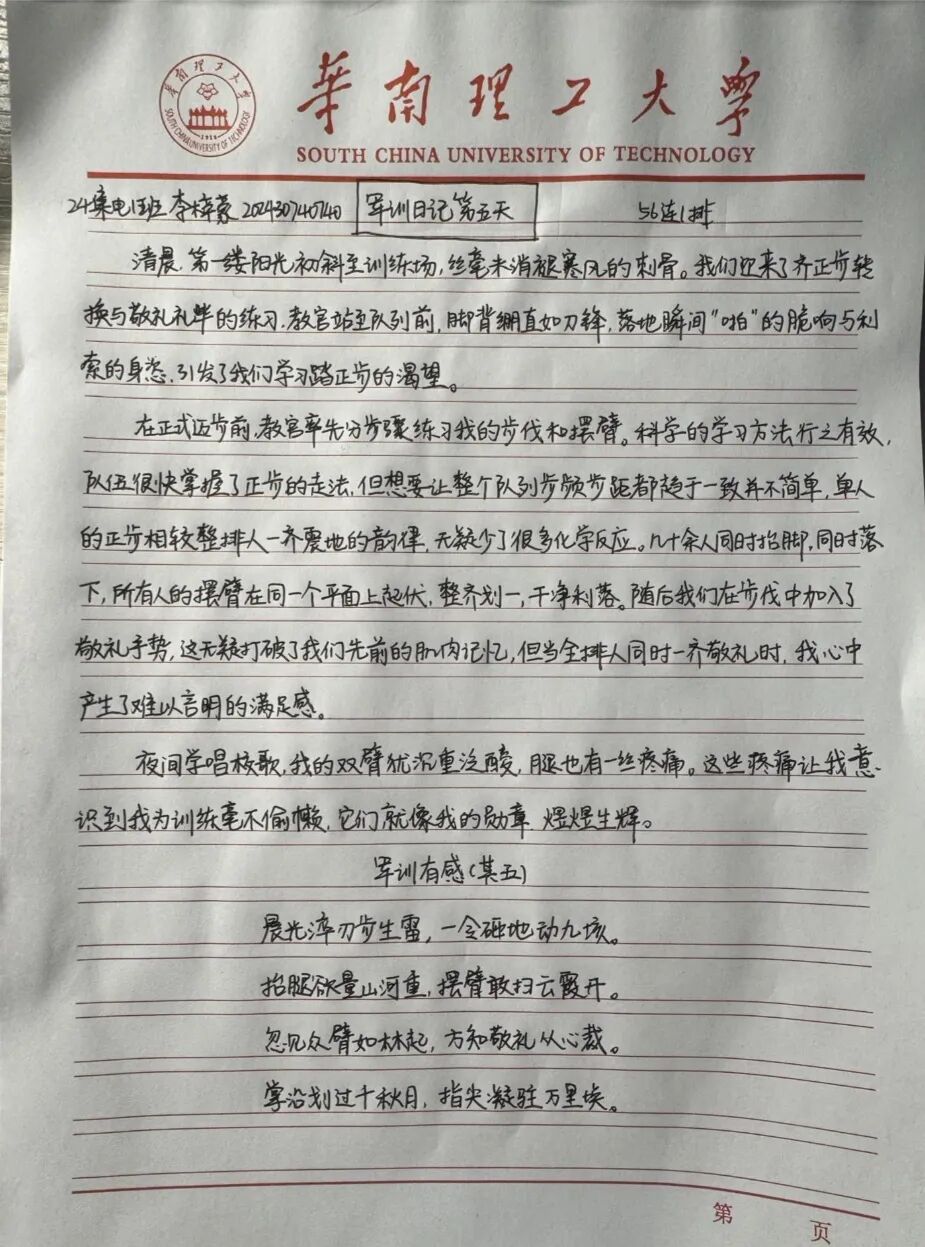 華南理工大學
SOUTH CHINA UNIVERSITY OF TECHNOLOGY
24集电1班 李梓豪 202430740740 军训日记第五天 56连1排
清晨,第一缕阳光初斜至训练场,丝毫未消褪寒风的刺骨。我们迎来了齐正步转
换与敬礼礼毕的练习,教官站至队列前,脚背绷直如刀锋,落地瞬间“啪”的脆响与利
索的身姿,引发了我们学习踏正步的渴望。
在正式迈步前,教官率先分步骤练习我的步伐和摆臂。科学的学习方法行之有效,
队伍很快掌握了正步的走法,但想要让整个队列步频步距都趋于一致并不简单,单人
的正步相较整排人一齐震地的韵律,无疑少了很多化学反应。几十余人同时抬脚,同时落
下,所有人的摆臂在同一个平面上起伏,整齐划一,干净利落。随后我们在步伐中加入了
敬礼手势,这无疑打破了我们先前的肌肉记忆,但当全排人同时一齐敬礼时,我心中
产生了难以言明的满足感。
夜间学唱校歌,我的双臂犹沉重泛酸,腿也有一丝疼痛。这些疼痛让我意
识到我为训练毫不偷懒,它们就像我的勋章 熠熠生辉。
军训有感(其五)
晨光淬刃步生雷,一令砸地动九垓。
抬腿欲量山河重,摆臂敢扫云霞开。
忽见众臂如林起,方知敬礼从心裁。
掌沿划过千秋月,指尖凝驻万里埃。
第 页